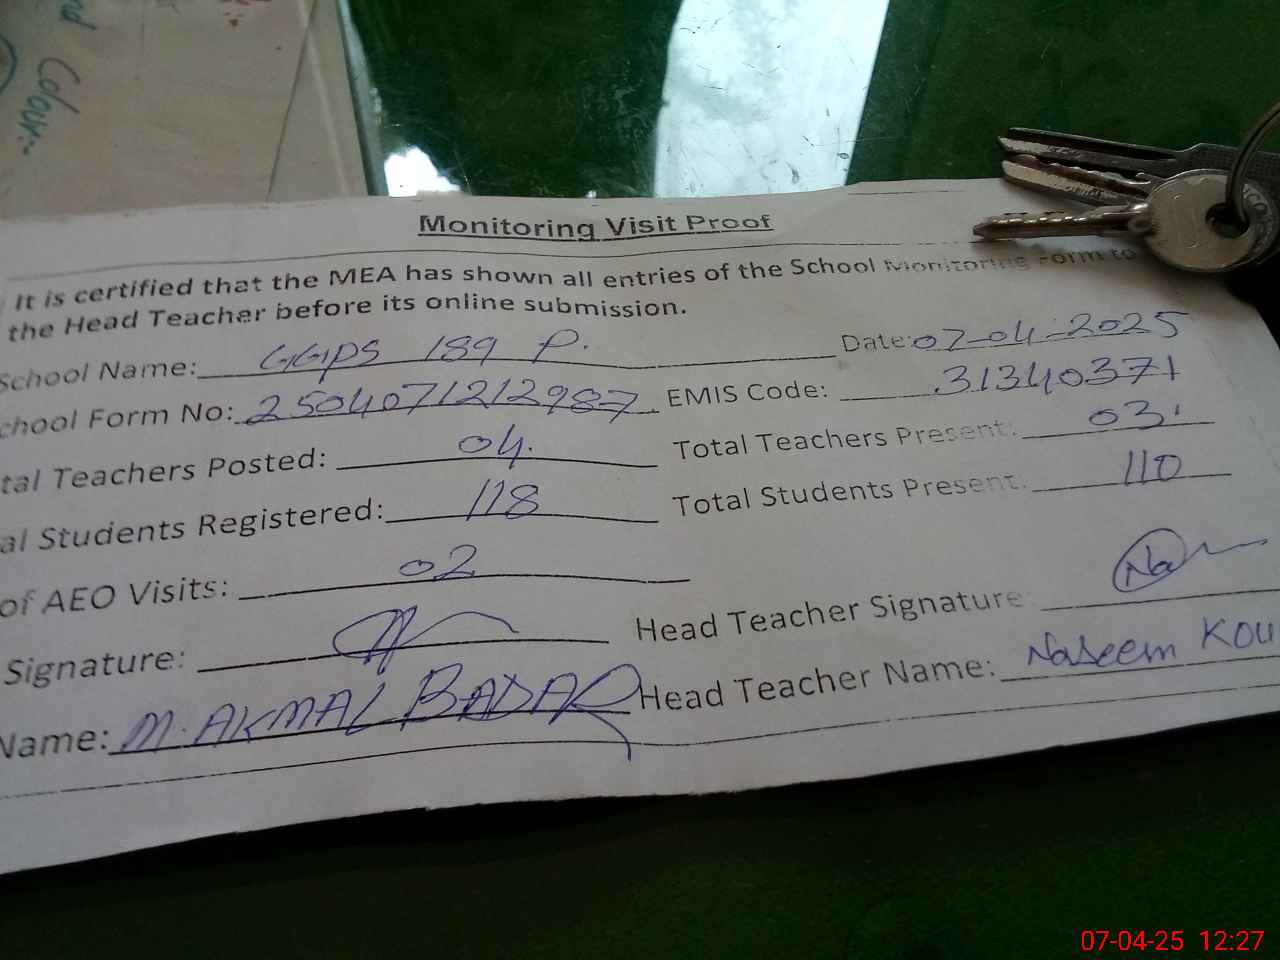 nd Colour:-
Monitoring Visit Proof
It is certified that the MEA has shown all entries of the School Monitoring Form to
the Head Teacher before its online submission.
School Name: GGPS 189 P. Date: 07-04-2025
chool Form No: 2504071212987 EMIS Code: 31340371
tal Teachers Posted: 04. Total Teachers Present: 03.
al Students Registered: 118 Total Students Present: 110
of AEO Visits: 02
Signature: Head Teacher Signature:
Name: M. AKMAL BADAR Head Teacher Name: Naseem KOU
07-04-25 12:27